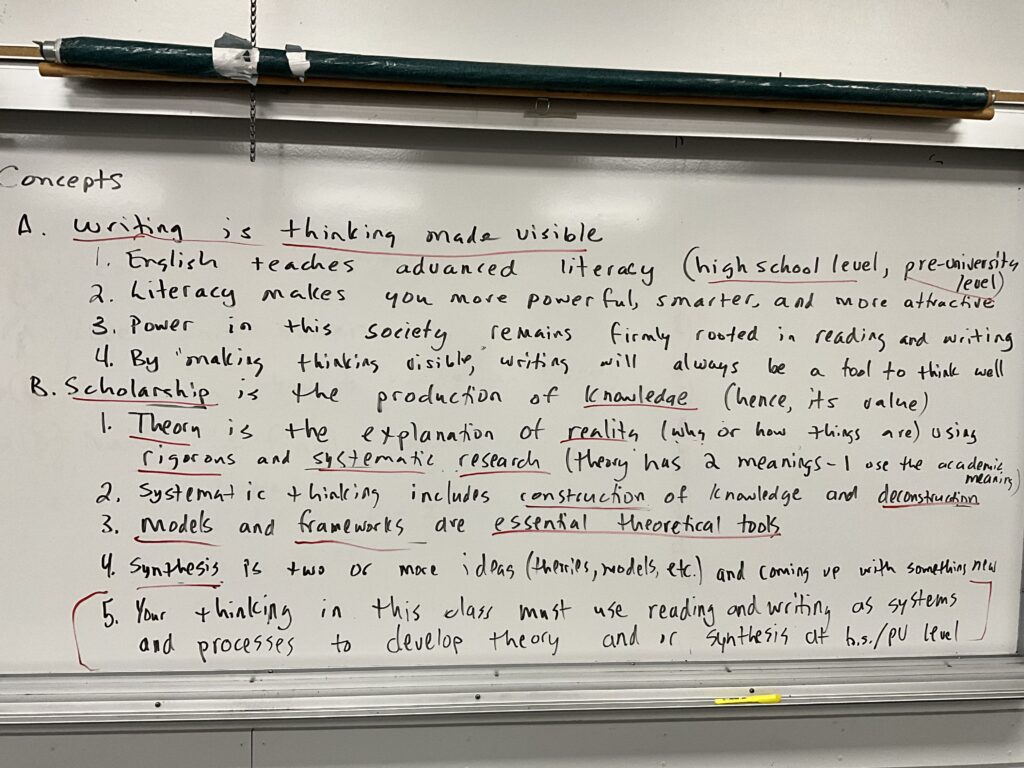 Concepts
A. Writing is thinking made visible
1. English teaches advanced literacy (high school level, pre-university level)
2. Literacy makes you more powerful, smarter, and more attractive
3. Power in this society remains firmly rooted in reading and writing
4. By "making thinking visible," writing will always be a tool to think well
B. Scholarship is the production of knowledge (hence, its value)
1. Theory is the explanation of reality (why or how things are) using
rigorous and systematic research (theory has 2 meanings - I use the academic meaning)
2. Systematic thinking includes construction of knowledge and deconstruction
3. Models and frameworks are essential theoretical tools
4. Synthesis is two or more ideas (theories, models, etc.) and coming up with something new
5. Your thinking in this class must use reading and writing as systems
and processes to develop theory and or synthesis at h.s./PU level